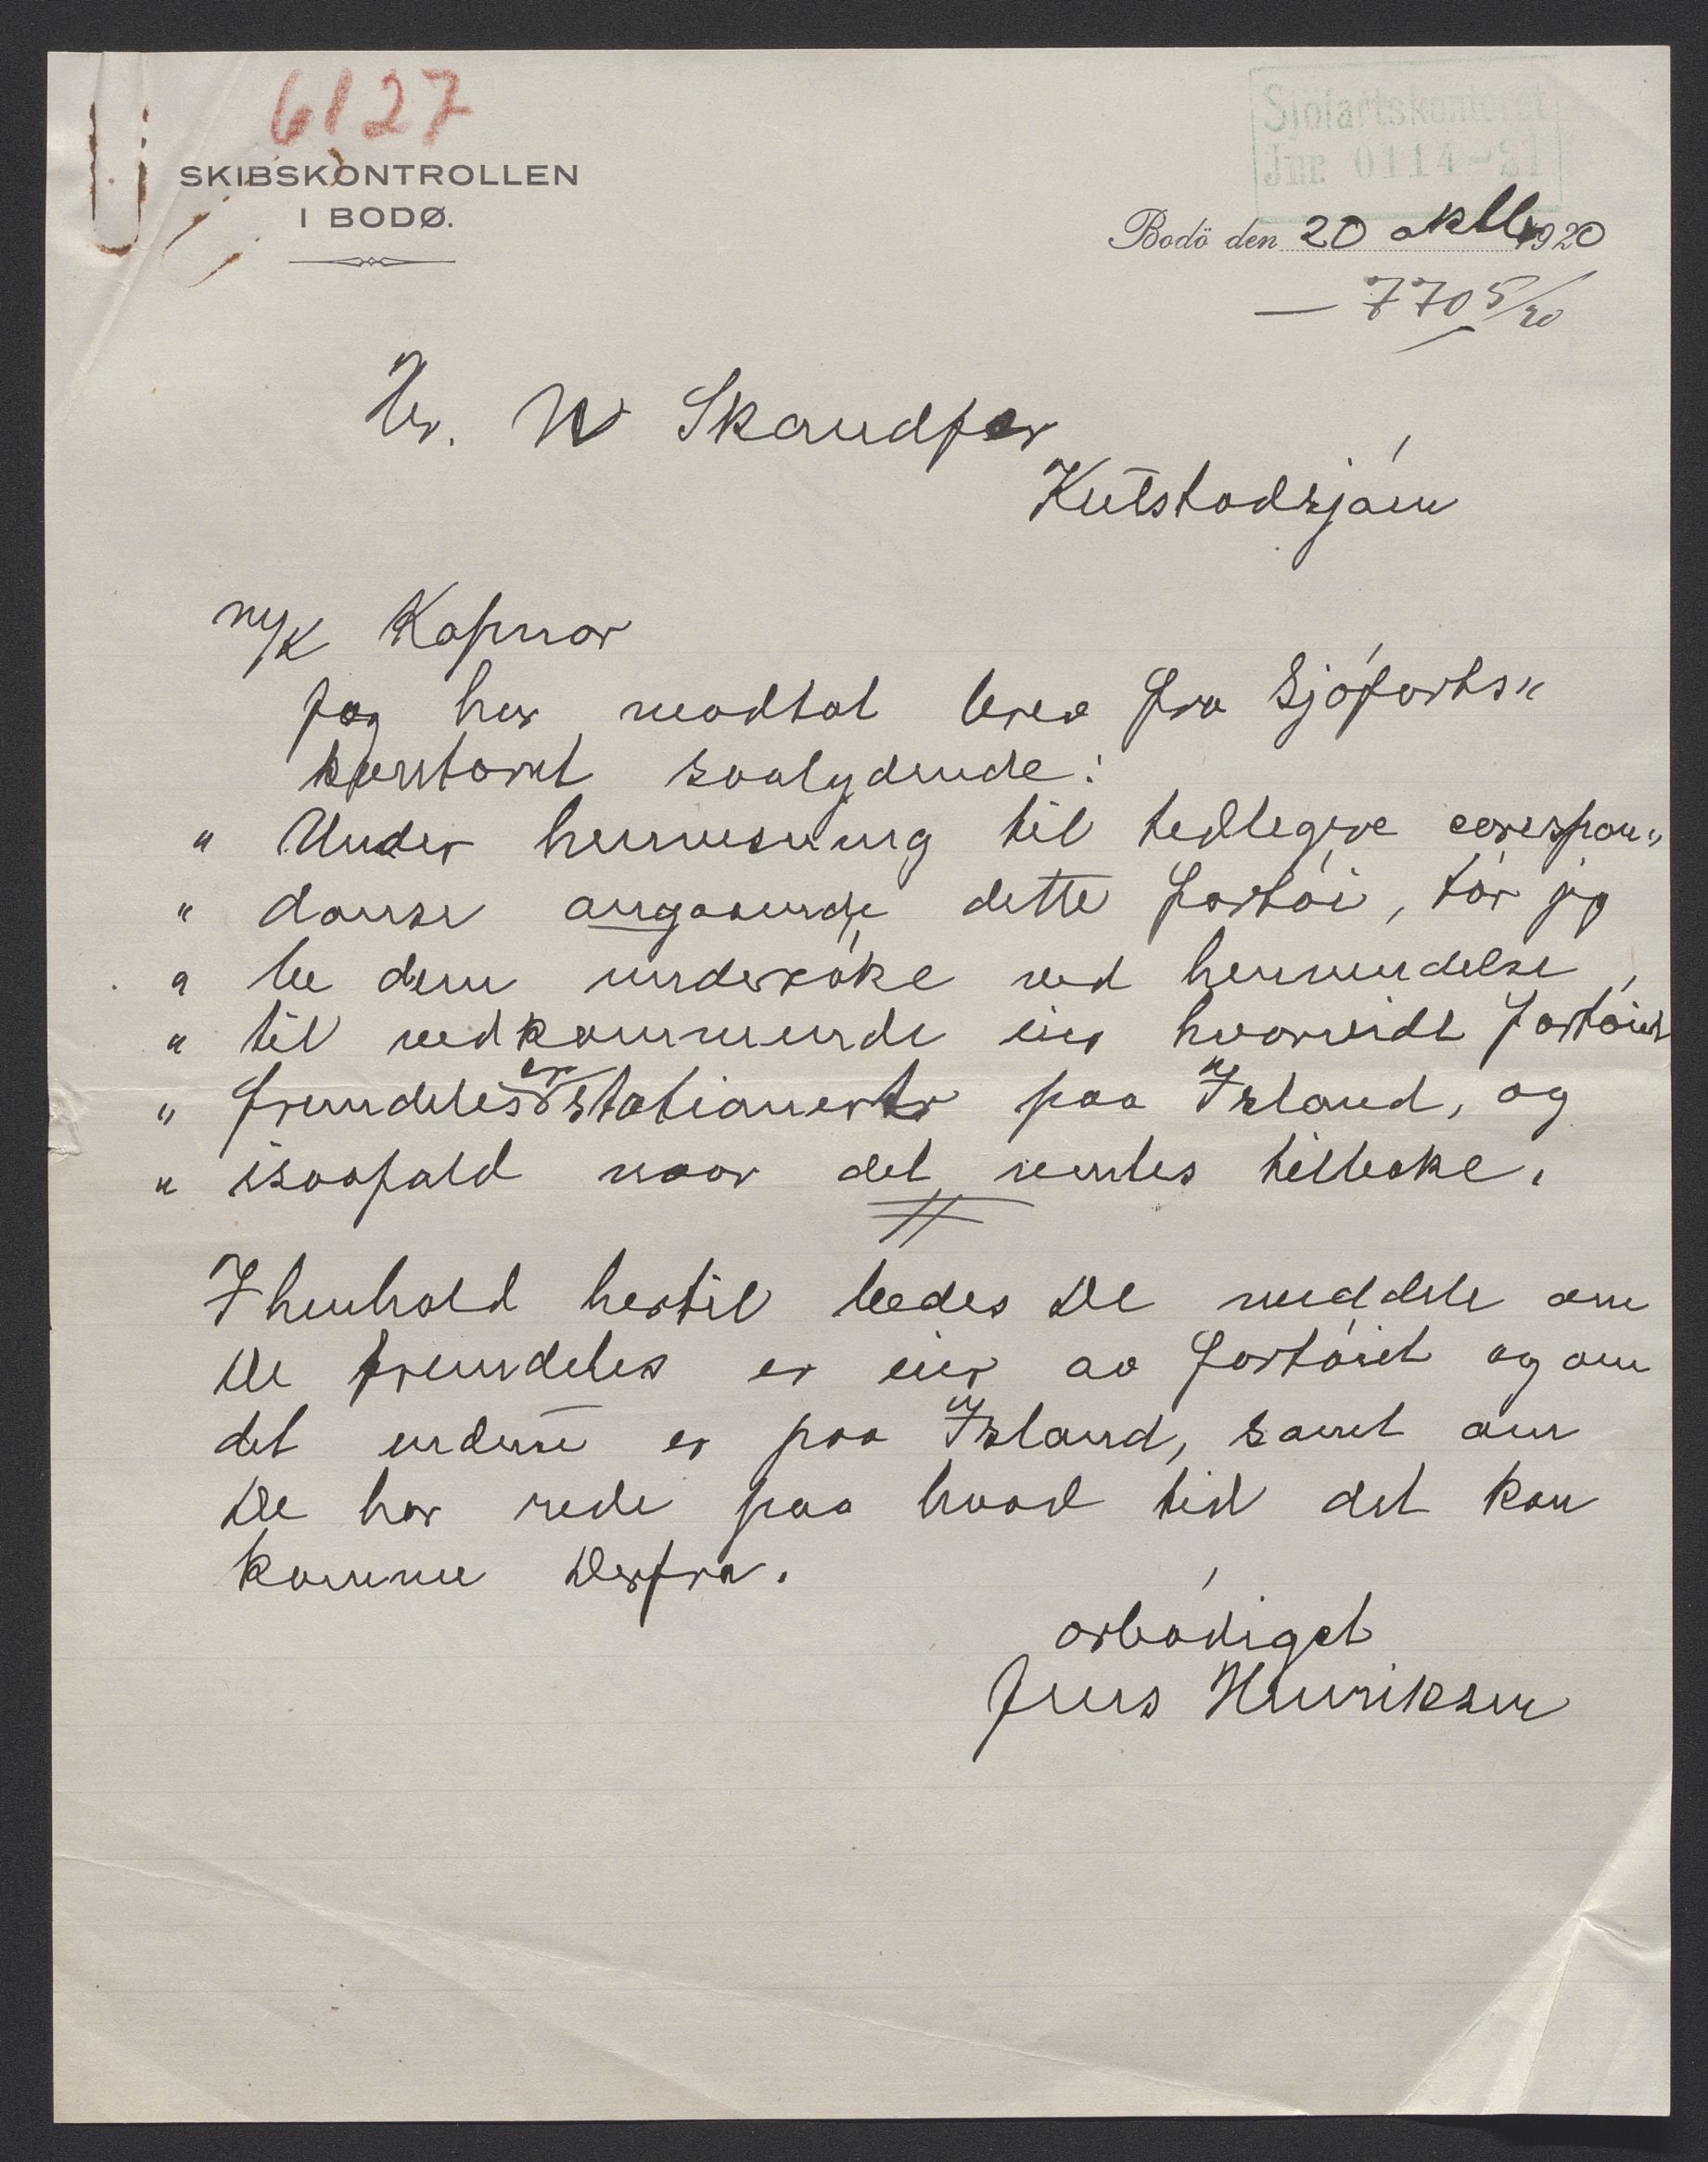 6127
SKIBSKONTROLLEN
I BODØ.
Sjöfartskontoret
Jnr. 0114-21
Bodö den 20 oktbr 1920
— 7705/20
Hr. W Skandfer
m/k Kapnor
Jeg har modtat brev fra Sjöfarts„
kontoret saalydende:
" Under henvisning til tidligere correspon„
" danse angaaende dette fartöi, tör jeg
" be dem undersöke ved henvendelse
" til vedkommende eier hvorvidt fartöiet
" fremdeles er stationert paa Island, og
" isaafald naar det ventes tilbake.
I henhold hertil bedes De meddele om
De fremdeles er eier av fartöiet og om
det endnu er paa Island, samt om
De har rede paa hvad tid det kan
komme Derfra.
ærbödigst
Jens Henriksen